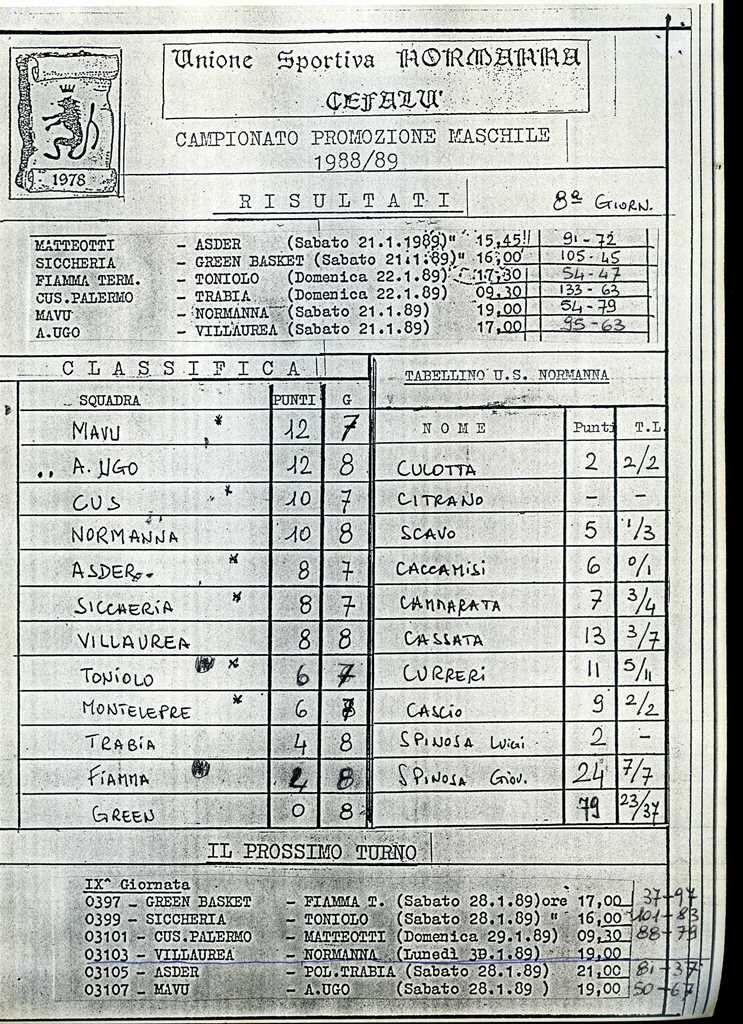 Unione Sportiva NORMANNA
CEFALU'
CAMPIONATO PROMOZIONE MASCHILE
1988/89
1978
RISULTATI 8ª GIORN.
MATTEOTTI - ASDER (Sabato 21.1.1989)" 15,45 91-72
SICCHERIA - GREEN BASKET (Sabato 21.1.89)" 16,00 105-45
FIAMMA TERM. - TONIOLO (Domenica 22.1.89) 17,30 54-47
CUS.PALERMO - TRABIA (Domenica 22.1.89) 09.30 133-63
MAVU - NORMANNA (Sabato 21.1.89) 19,00 54-79
A.UGO - VILLAUREA (Sabato 21.1.89) 17,00 95-63
CLASSIFICA
SQUADRA PUNTI G
MAVU * 12 7
A. UGO 12 8
CUS * 10 7
NORMANNA 10 8
ASDER * 8 7
SICCHERIA * 8 7
VILLAUREA 8 8
TONIOLO * 6 7
MONTELEPRE * 6
TRABIA 4 8
FIAMMA 8
GREEN 0 8
TABELLINO U.S. NORMANNA
NOME Punti T.L.
CULOTTA 2 2/2
CITRANO - -
SCAVO 5 1/3
CACCAMISI 6 0/1
CAMMARATA 7 3/4
CASSATA 13 3/7
CURRERI 11 5/11
CASCIO 9 2/2
SPINOSA Luigi 2 -
SPINOSA Giov. 24 7/7
79 23/37
IL PROSSIMO TURNO
IX^ Giornata
0397 - GREEN BASKET - FIAMMA T. (Sabato 28.1.89)ore 17,00 37-97
0399 - SICCHERIA - TONIOLO (Sabato 28.1.89) " 16,00 101-83
03101 - CUS.PALERMO - MATTEOTTI (Domenica 29.1.89) 09,30 88-79
03103 - VILLAUREA - NORMANNA (Lunedì 30.1.89) 19,00
03105 - ASDER - POL.TRABIA (Sabato 28.1.89) 21,00 81-37
03107 - MAVU - A.UGO (Sabato 28.1.89 ) 19,00 50-67